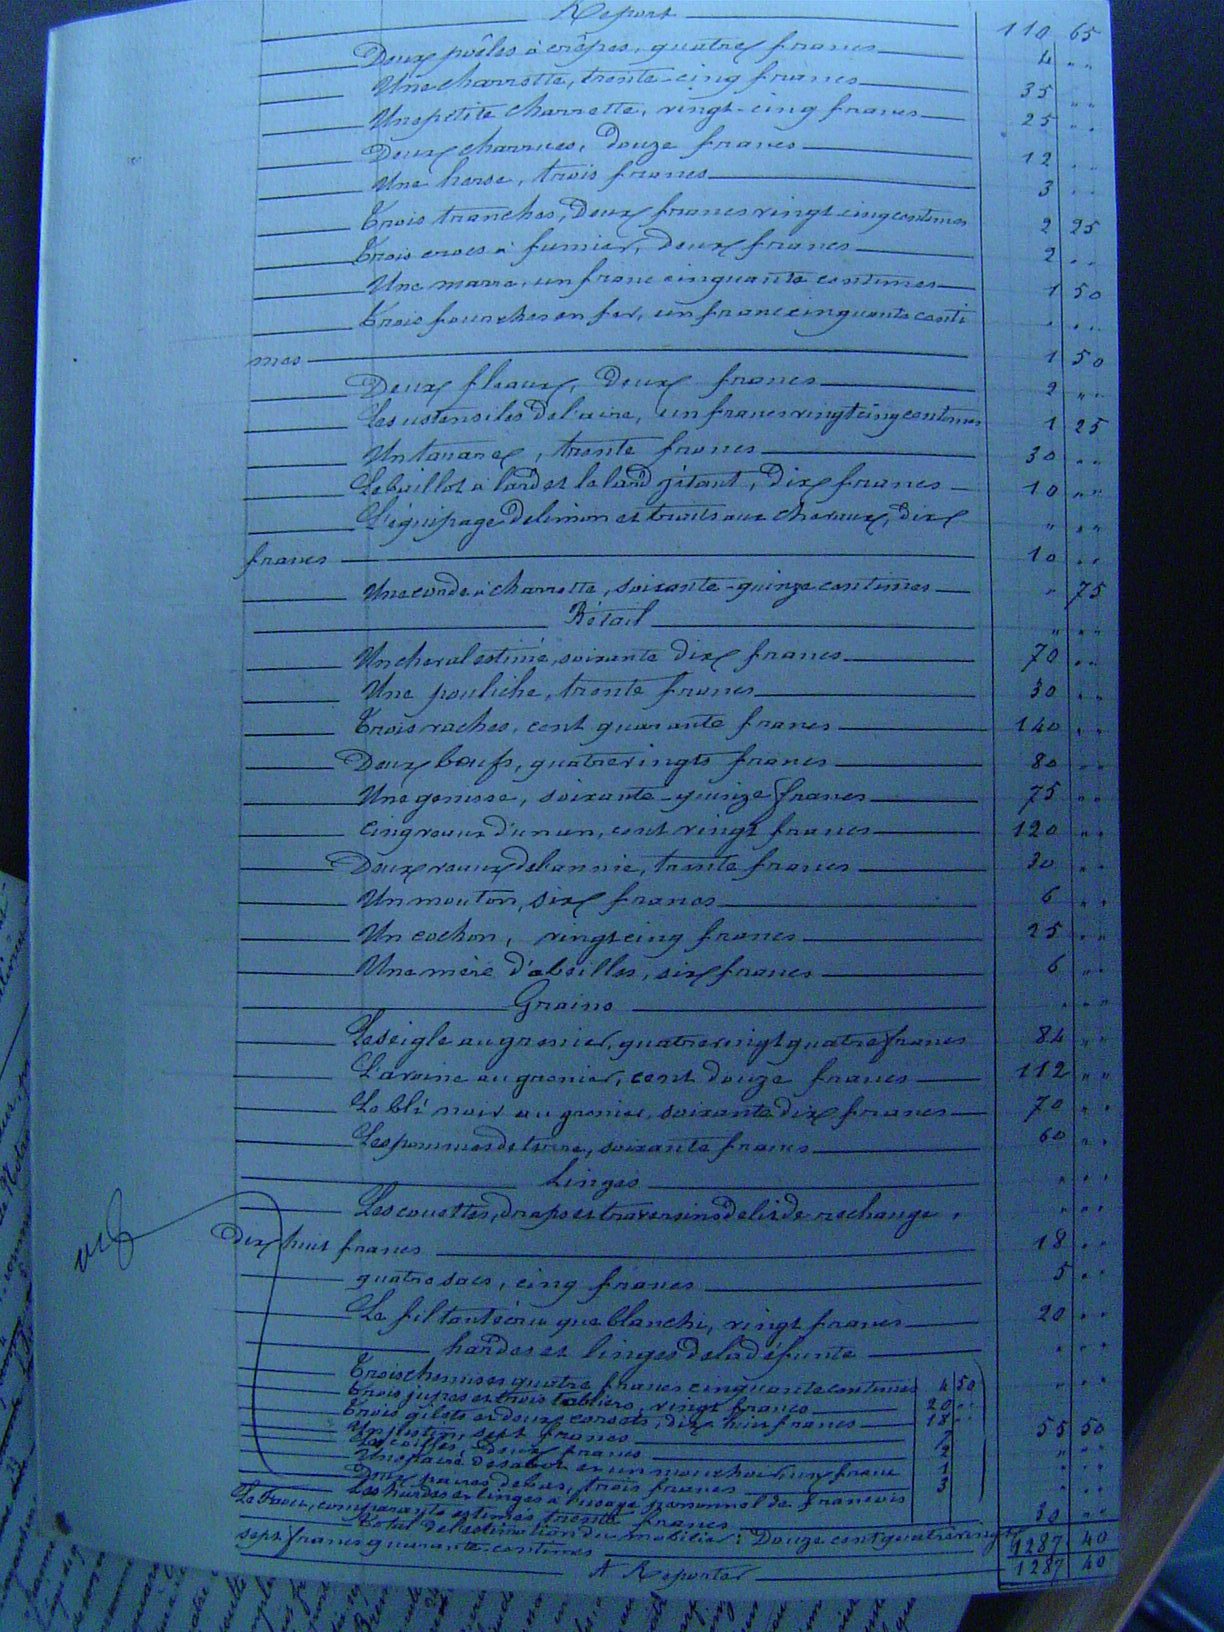 Report 110 65
Deux poêles à crêpes, quatre francs 4 "
Une charrette, trente-cinq francs 35 "
Une petite charrette, vingt-cinq francs 25 "
Deux charrues, douze francs 12 "
Une herse, trois francs 3 "
Trois tranches, deux francs vingt cinq centimes 2 25
Trois crocs à fumier, deux francs 2 "
Une marre, un franc cinquante centimes 1 50
Trois fourches en fer, un franc cinquante centi
mes 1 50
Deux fleaux, deux francs 2 "
Les ustensiles de l'aire, un francs vingt cinq centimes 1 25
Un tarare, trente francs 30 "
Le baillot à lard et le lard y étant, dix francs 10 "
L'équipage de limon et traits aux chevaux, dix
francs 10 "
Une corde à charrette, soixante-quinze centimes " 75
Bétail
Un cheval estimé, soixante dix francs 70 "
Une pouliche, trente francs 30 "
Trois vaches, cent quarante francs 140 "
Deux bœufs, quatre vingts francs 80 "
Une genisse, soixante-quinze francs 75 "
Cinq veaux d'un an, cent vingt francs 120 "
Deux veaux de l'année, trente francs 30 "
Un mouton, six francs 6 "
Un cochon, vingt cinq francs 25 "
Une mère d'abeilles, six francs 6 "
Grains
Le seigle au grenier, quatre vingt quatre francs 84 "
L'avoine au grenier, cent douze francs 112 "
Le blé noir au grenier, soixante dix francs 70 "
Les pommes de terre, soixante francs 60 "
Linges
Les couettes, draps et traversins de lit de rechange,
dix huit francs 18 "
quatre sacs, cinq francs 5 "
Le fil tant écru que blanchi, vingt francs 20 "
hardes et linges de la défunte
Trois chemises quatre francs cinquante centimes 4 50
Trois jupes et trois tabliers, vingt francs 20 "
Trois gilets et deux corsets, dix huit francs 18 " 55 50
sept francs 7
Les coiffes, deux francs 2
Une paire de sabots et un mouchoir, un franc 1
Deux paires de bas, trois francs 3
Les hardes et linges à l'usage personnel de François
Le Faou, comparant estimés trente francs 30 "
Total de l'estimation du mobilier: Douze cent quatre vingt
sept francs quarante centimes 1287 40
A Reporter 1287 40